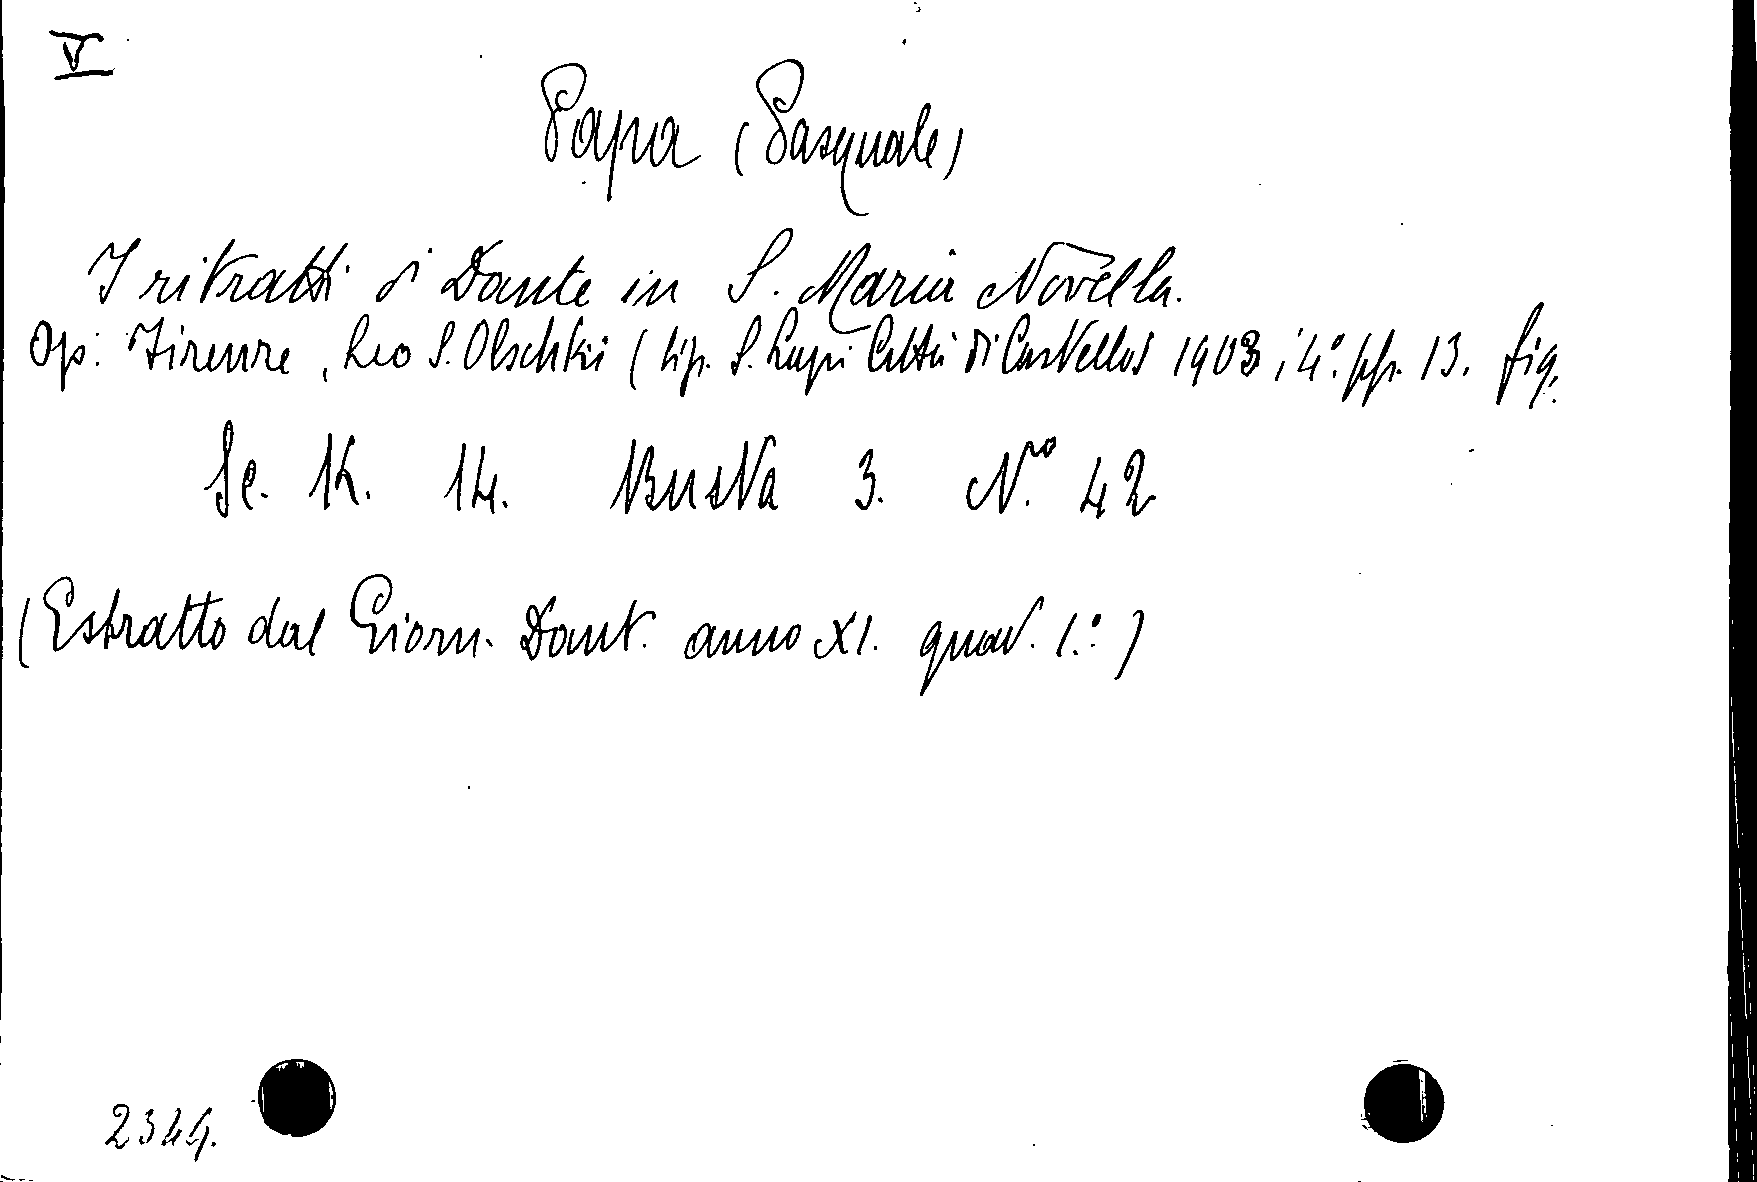 V
Papa (Pasquale)
I ritratti di Dante in S. Maria Novella.
Op: Firenze, Leo S. Olschki (tip. S. Lapi Città di Castello) 1903, 4.° pp. 13. fig.
Sc. K. 14. Busta 3. N.° 42
(Estratto dal Giorn. Dant. anno XI. quad. 1.°)